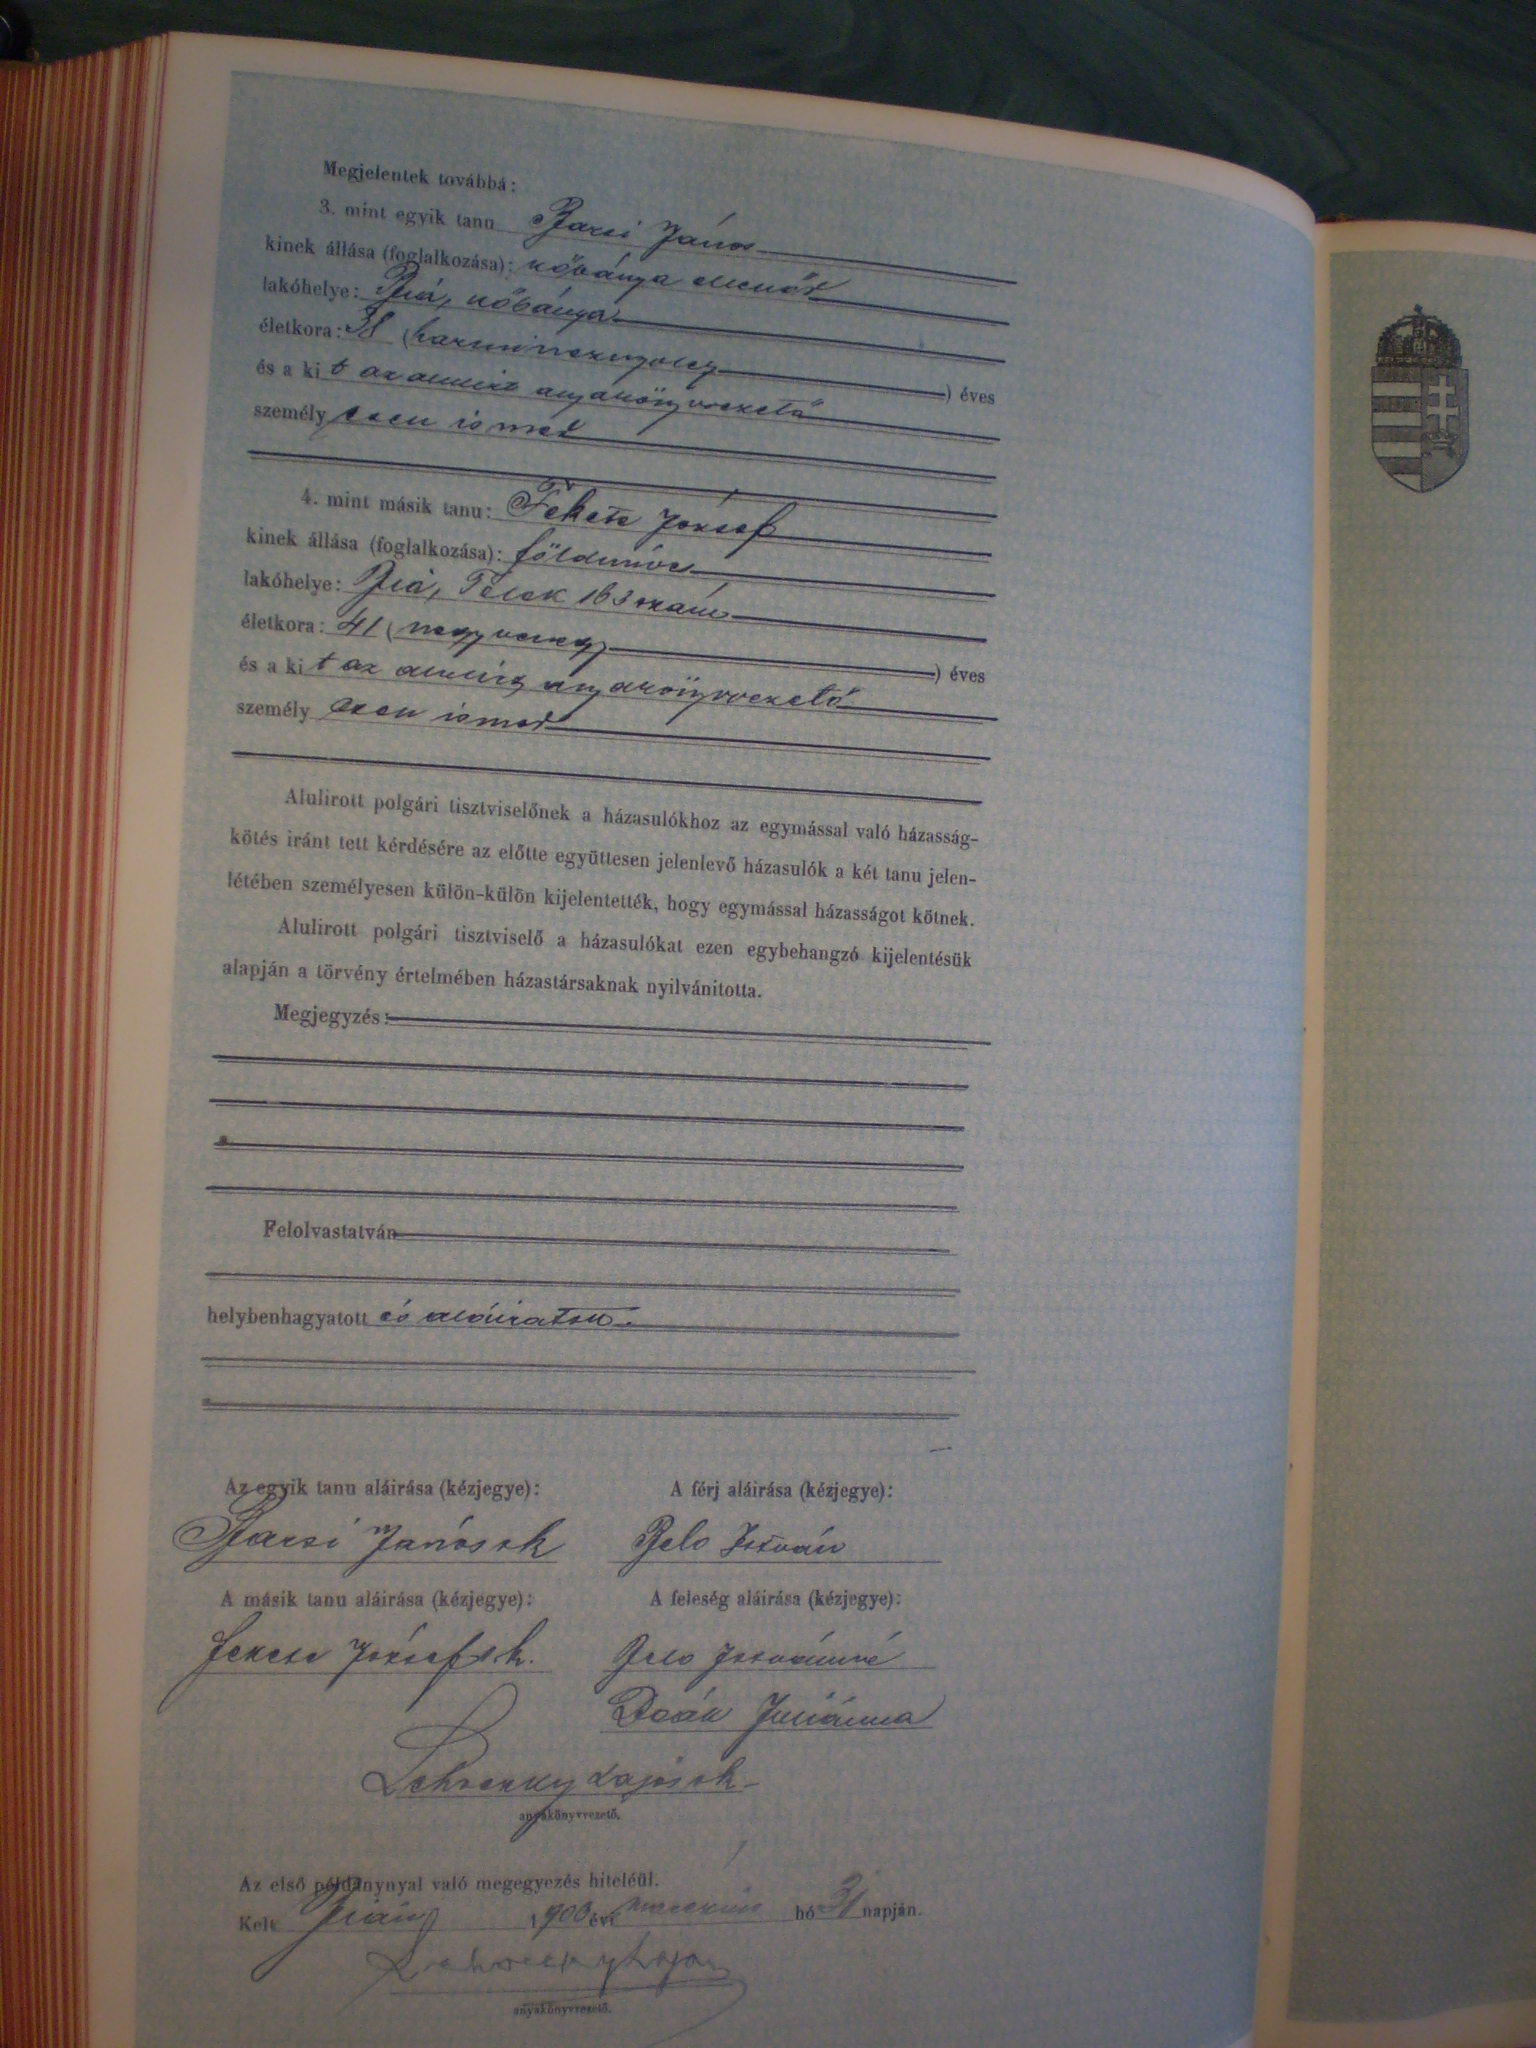 Megjelentek továbbá:
3. mint egyik tanu Barsi János
kinek állása (foglalkozása): kőbánya ellenőr
lakóhelye: Biá, kőbánya
életkora: 38 (harmincznyolcz ) éves
és a ki t az alulirt anyakönyvvezető
személyesen ismer
4. mint másik tanu: Fekete József
kinek állása (foglalkozása): földmíves
lakóhelye: Biá, Telek 163 szám
életkora: 41 (negyvenegy ) éves
és a ki t az alulirt anyakönyvvezető
személyesen ismer
Alulirott polgári tisztviselőnek a házasulókhoz az egymással való házasság-
kötés iránt tett kérdésére az előtte együttesen jelenlevő házasulók a két tanu jelen-
létében személyesen külön-külön kijelentették, hogy egymással házasságot kötnek.
Alulirott polgári tisztviselő a házasulókat ezen egybehangzó kijelentésük
alapján a törvény értelmében házastársaknak nyilvánitotta.
Megjegyzés:
Felolvastatván
helybenhagyatott és aláiratott.
Az egyik tanu aláirása (kézjegye): A férj aláirása (kézjegye):
Barsi János sk Belo István
A másik tanu aláirása (kézjegye): A feleség aláirása (kézjegye):
Fekete József sk. Belo Istvánné
Deák Juliánna
Lajos sk
anyakönyvvezető.
Az első példánynyal való megegyezés hiteléül.
Kelt Bián 1900 évi marczius hó 31 napján.
anyakönyvvezető.